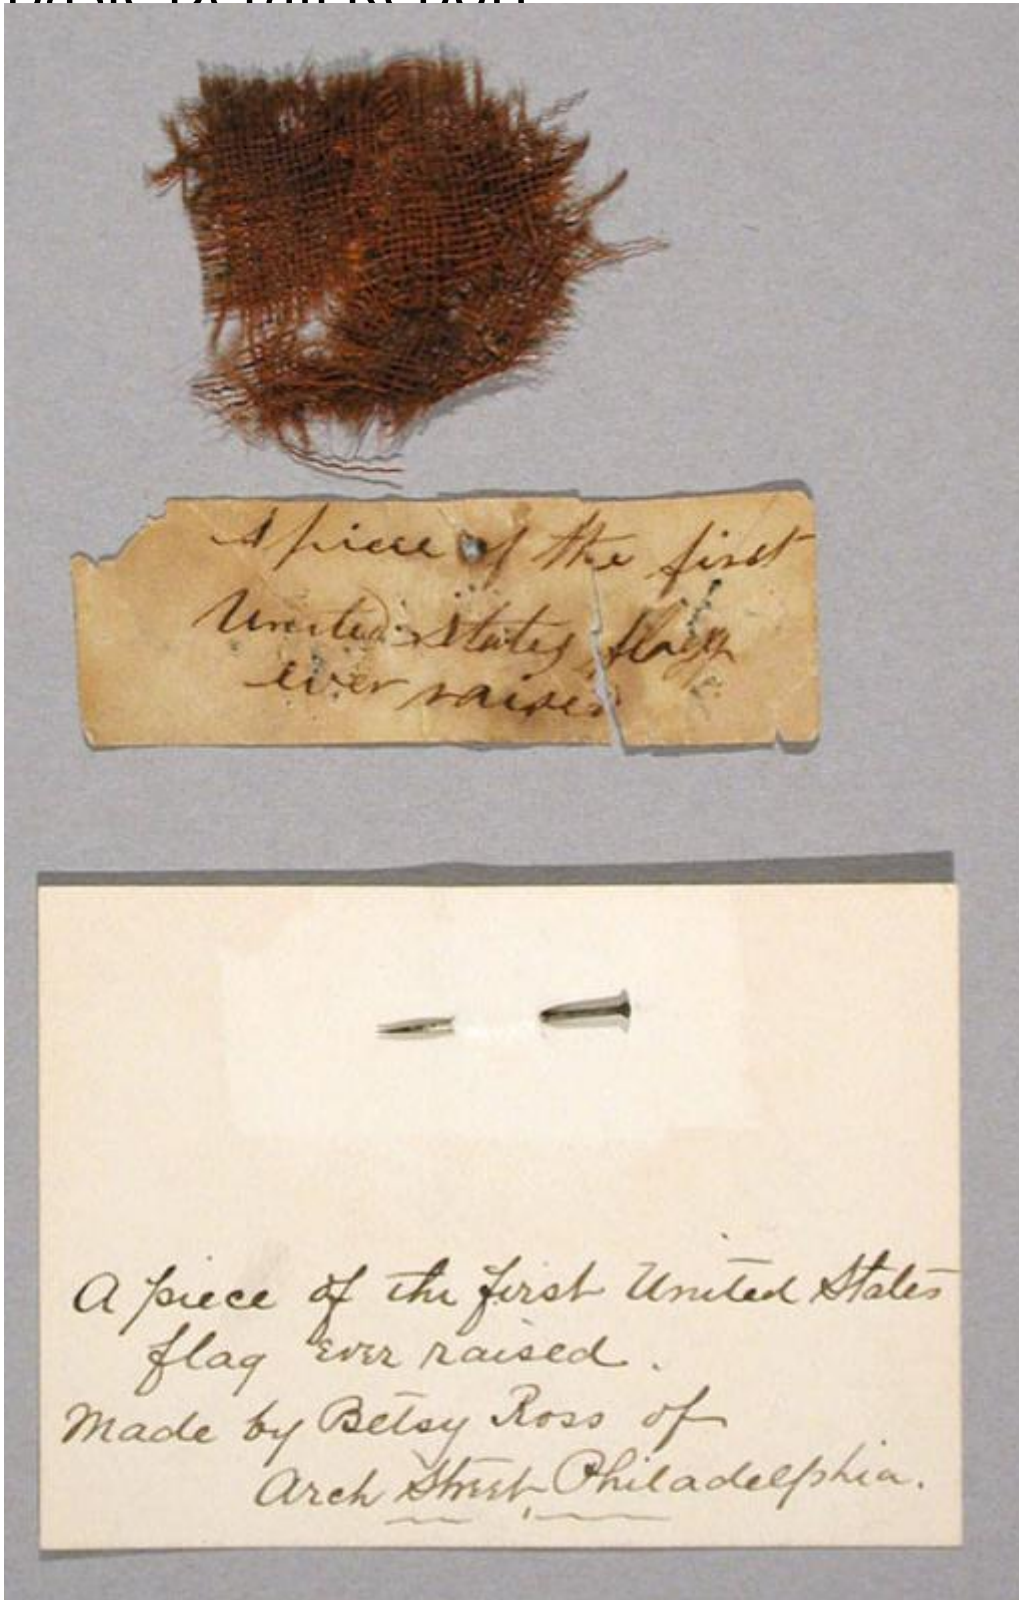 A piece of the first
United States flag
ever raised
A piece of the first United States
flag ever raised.
Made by Betsy Ross of
Arch Street, Philadelphia.